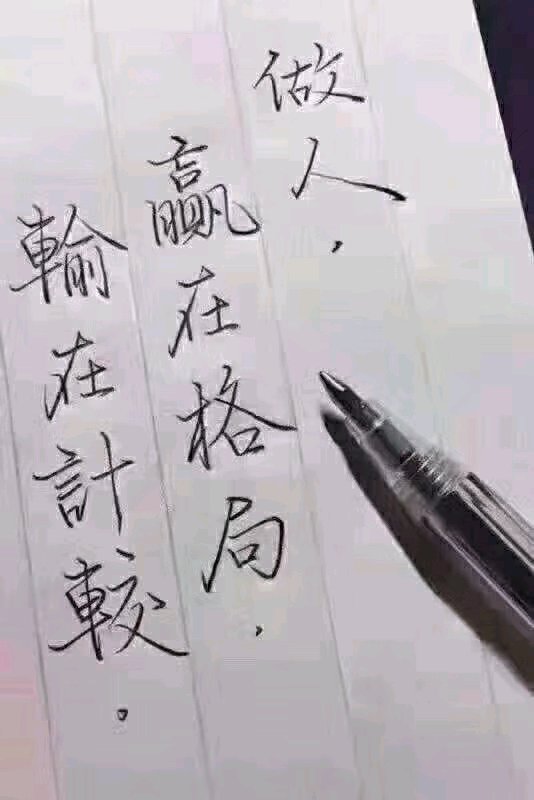 做人，
赢在格局，
輸在計較．